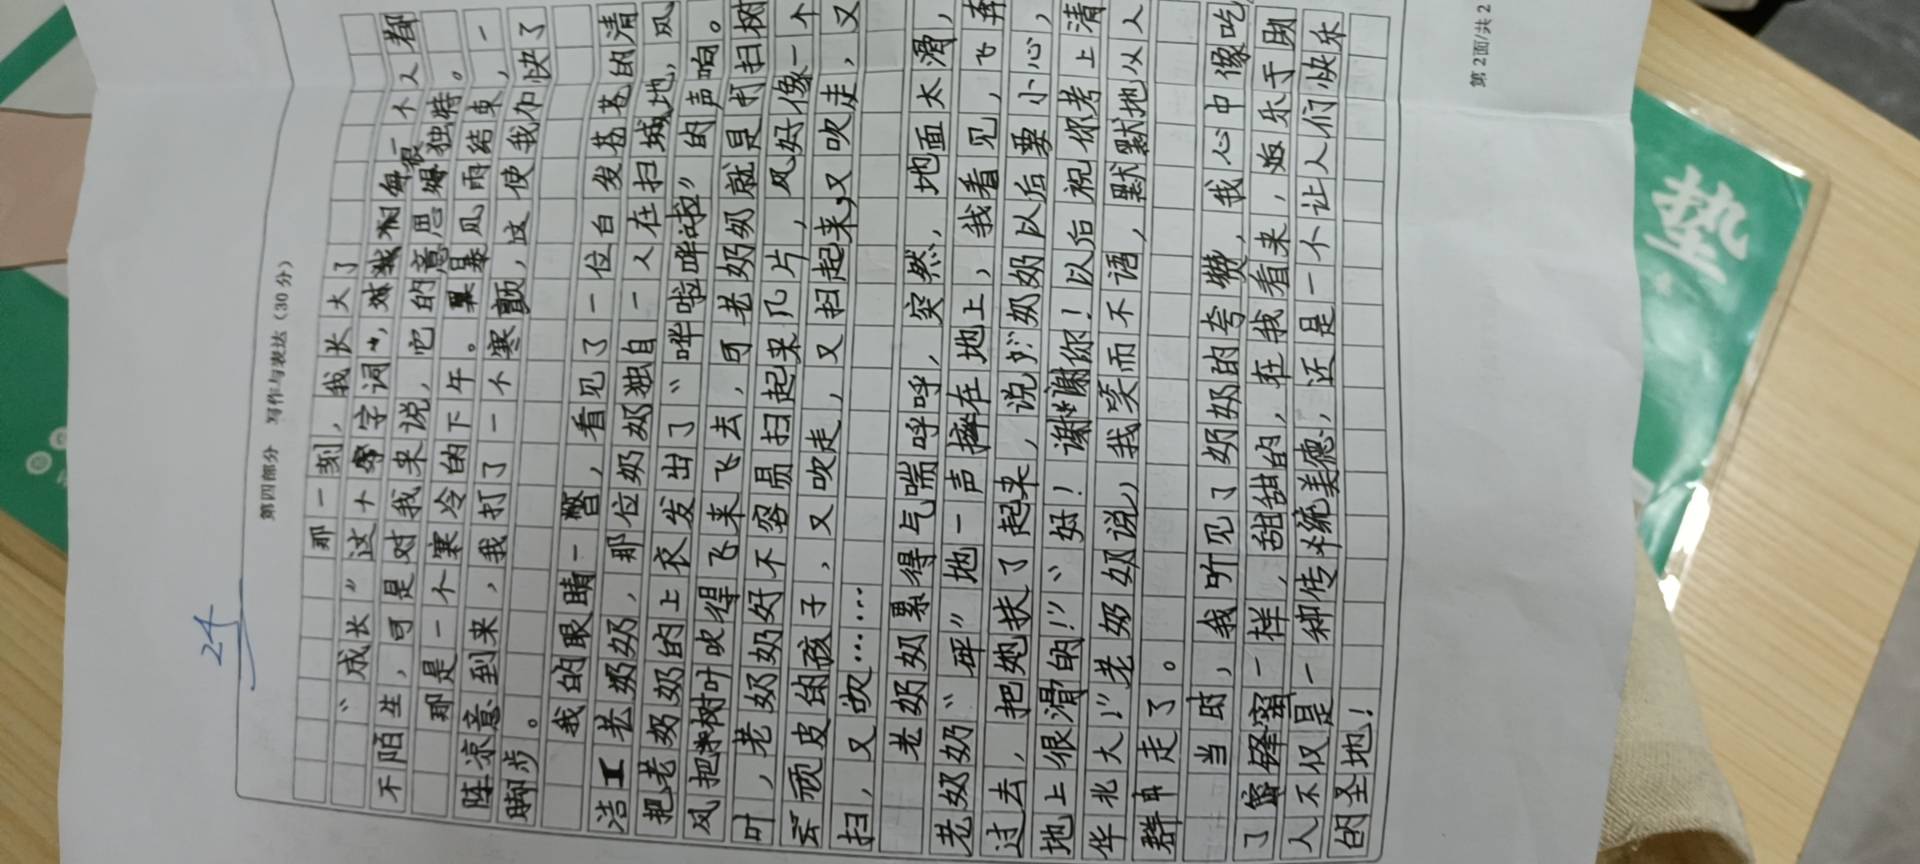 24
第四部分 写作与表达（30分）
那一刻，我长大了
“成长”这个字词，对每一个人都
不陌生，可是对我来说，它的意思很独特。
那是一个寒冷的下午。暴风雨结束，一
阵凉意到来，我打了一个寒颤，这使我加快了
脚步。
我的眼睛一瞥，看见了一位白发苍苍的清
洁工老奶奶，那位奶奶独自一人在扫地，风
把老奶奶的上衣发出了“哗啦哗啦”的声响。
风把树叶吹得飞来飞去，可老奶奶就是打扫树
叶，老奶奶好不容易扫起来几片，风好像一个
顽皮的孩子，又吹走，又扫起来，又吹走，又
扫，又吹……
老奶奶累得气喘呼呼，突然，地面太滑，
老奶奶“砰”地一声摔在地上，我看见，飞奔
过去，把她扶了起来，说：“奶奶以后要小心，
地上很滑的！”“好！谢谢你！以后祝你考上清
华北大！”老奶奶说，我笑而不语，默默地从人
群中走了。
当时，我听见了奶奶的夸赞，我心中像吃
了蜂蜜一样，甜甜的，在我看来，乐于助
人不仅是一种传统美德，还是一个让人们快乐
的圣地！
第2面/共2
垫